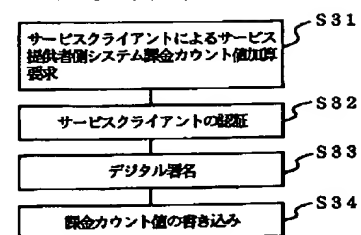 サービスクライアントによるサービス
提供者側システム課金カウント値加算
要求
S31
サービスクライアントの認証
S82
デジタル署名
S33
課金カウント値の書き込み
S34